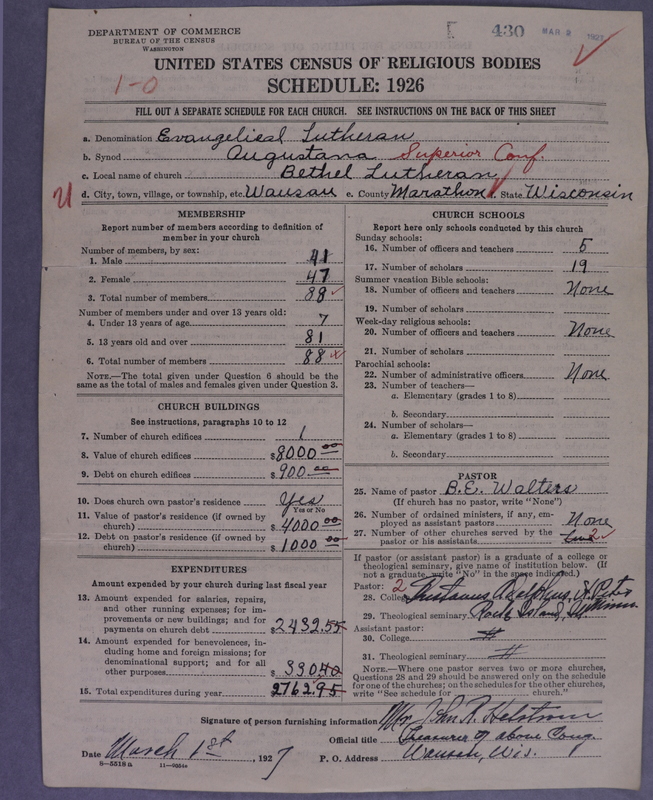 DEPARTMENT OF COMMERCE
BUREAU OF THE CENSUS
WASHINGTON
430 MAR 2 1927
UNITED STATES CENSUS OF RELIGIOUS BODIES
1-0
SCHEDULE: 1926
FILL OUT A SEPARATE SCHEDULE FOR EACH CHURCH. SEE INSTRUCTIONS ON THE BACK OF THIS SHEET
a. Denomination Evangelical Lutheran
b. Synod Augustana Superior Conf.
c. Local name of church Bethel Lutheran
U d. City, town, village, or township, etc. Wausau e. County Marathon f. State Wisconsin
MEMBERSHIP
Report number of members according to definition of
member in your church
Number of members, by sex:
1. Male 41
2. Female 47
3. Total number of members 88
Number of members under and over 13 years old:
4. Under 13 years of age 7
5. 13 years old and over 81
6. Total number of members 88
NOTE.—The total given under Question 6 should be the
same as the total of males and females given under Question 3.
CHURCH BUILDINGS
See instructions, paragraphs 10 to 12
7. Number of church edifices 1
8. Value of church edifices $8000.00
9. Debt on church edifices $900.00
10. Does church own pastor's residence Yes
Yes or No
11. Value of pastor's residence (if owned by
church) $4000.00
12. Debt on pastor's residence (if owned by
church) $1000.00
EXPENDITURES
Amount expended by your church during last fiscal year
13. Amount expended for salaries, repairs,
and other running expenses; for im-
provements or new buildings; and for
payments on church debt $2432.55
14. Amount expended for benevolences, in-
cluding home and foreign missions; for
denominational support; and for all
other purposes $330.40
15. Total expenditures during year 2762.95
CHURCH SCHOOLS
Report here only schools conducted by this church
Sunday schools:
16. Number of officers and teachers 5
17. Number of scholars 19
Summer vacation Bible schools:
18. Number of officers and teachers None
19. Number of scholars
Week-day religious schools:
20. Number of officers and teachers None
21. Number of scholars
Parochial schools:
22. Number of administrative officers None
23. Number of teachers—
a. Elementary (grades 1 to 8)
b. Secondary
24. Number of scholars—
a. Elementary (grades 1 to 8)
b. Secondary
PASTOR
25. Name of pastor B.E. Walters
(If church has no pastor, write "None")
26. Number of ordained ministers, if any, em-
ployed as assistant pastors None
27. Number of other churches served by the
pastor or his assistants two 2
If pastor (or assistant pastor) is a graduate of a college or
theological seminary, give name of institution below. (If
not a graduate, write "No" in the space indicated.)
Pastor: 2
28. College Gustavus Adolphus, St Peter
Minn
29. Theological seminary Rock Island, Ill
Assistant pastor:
30. College
31. Theological seminary
NOTE.—Where one pastor serves two or more churches,
Questions 28 and 29 should be answered only on the schedule
for one of the churches; on the schedules for the other churches,
write "See schedule for church."
Signature of person furnishing information Mr John R. Helstrom
Official title Treasurer of above Cong.
Date March 1st, 1927 P. O. Address Wausau, Wis.
8-5518a 11-9664